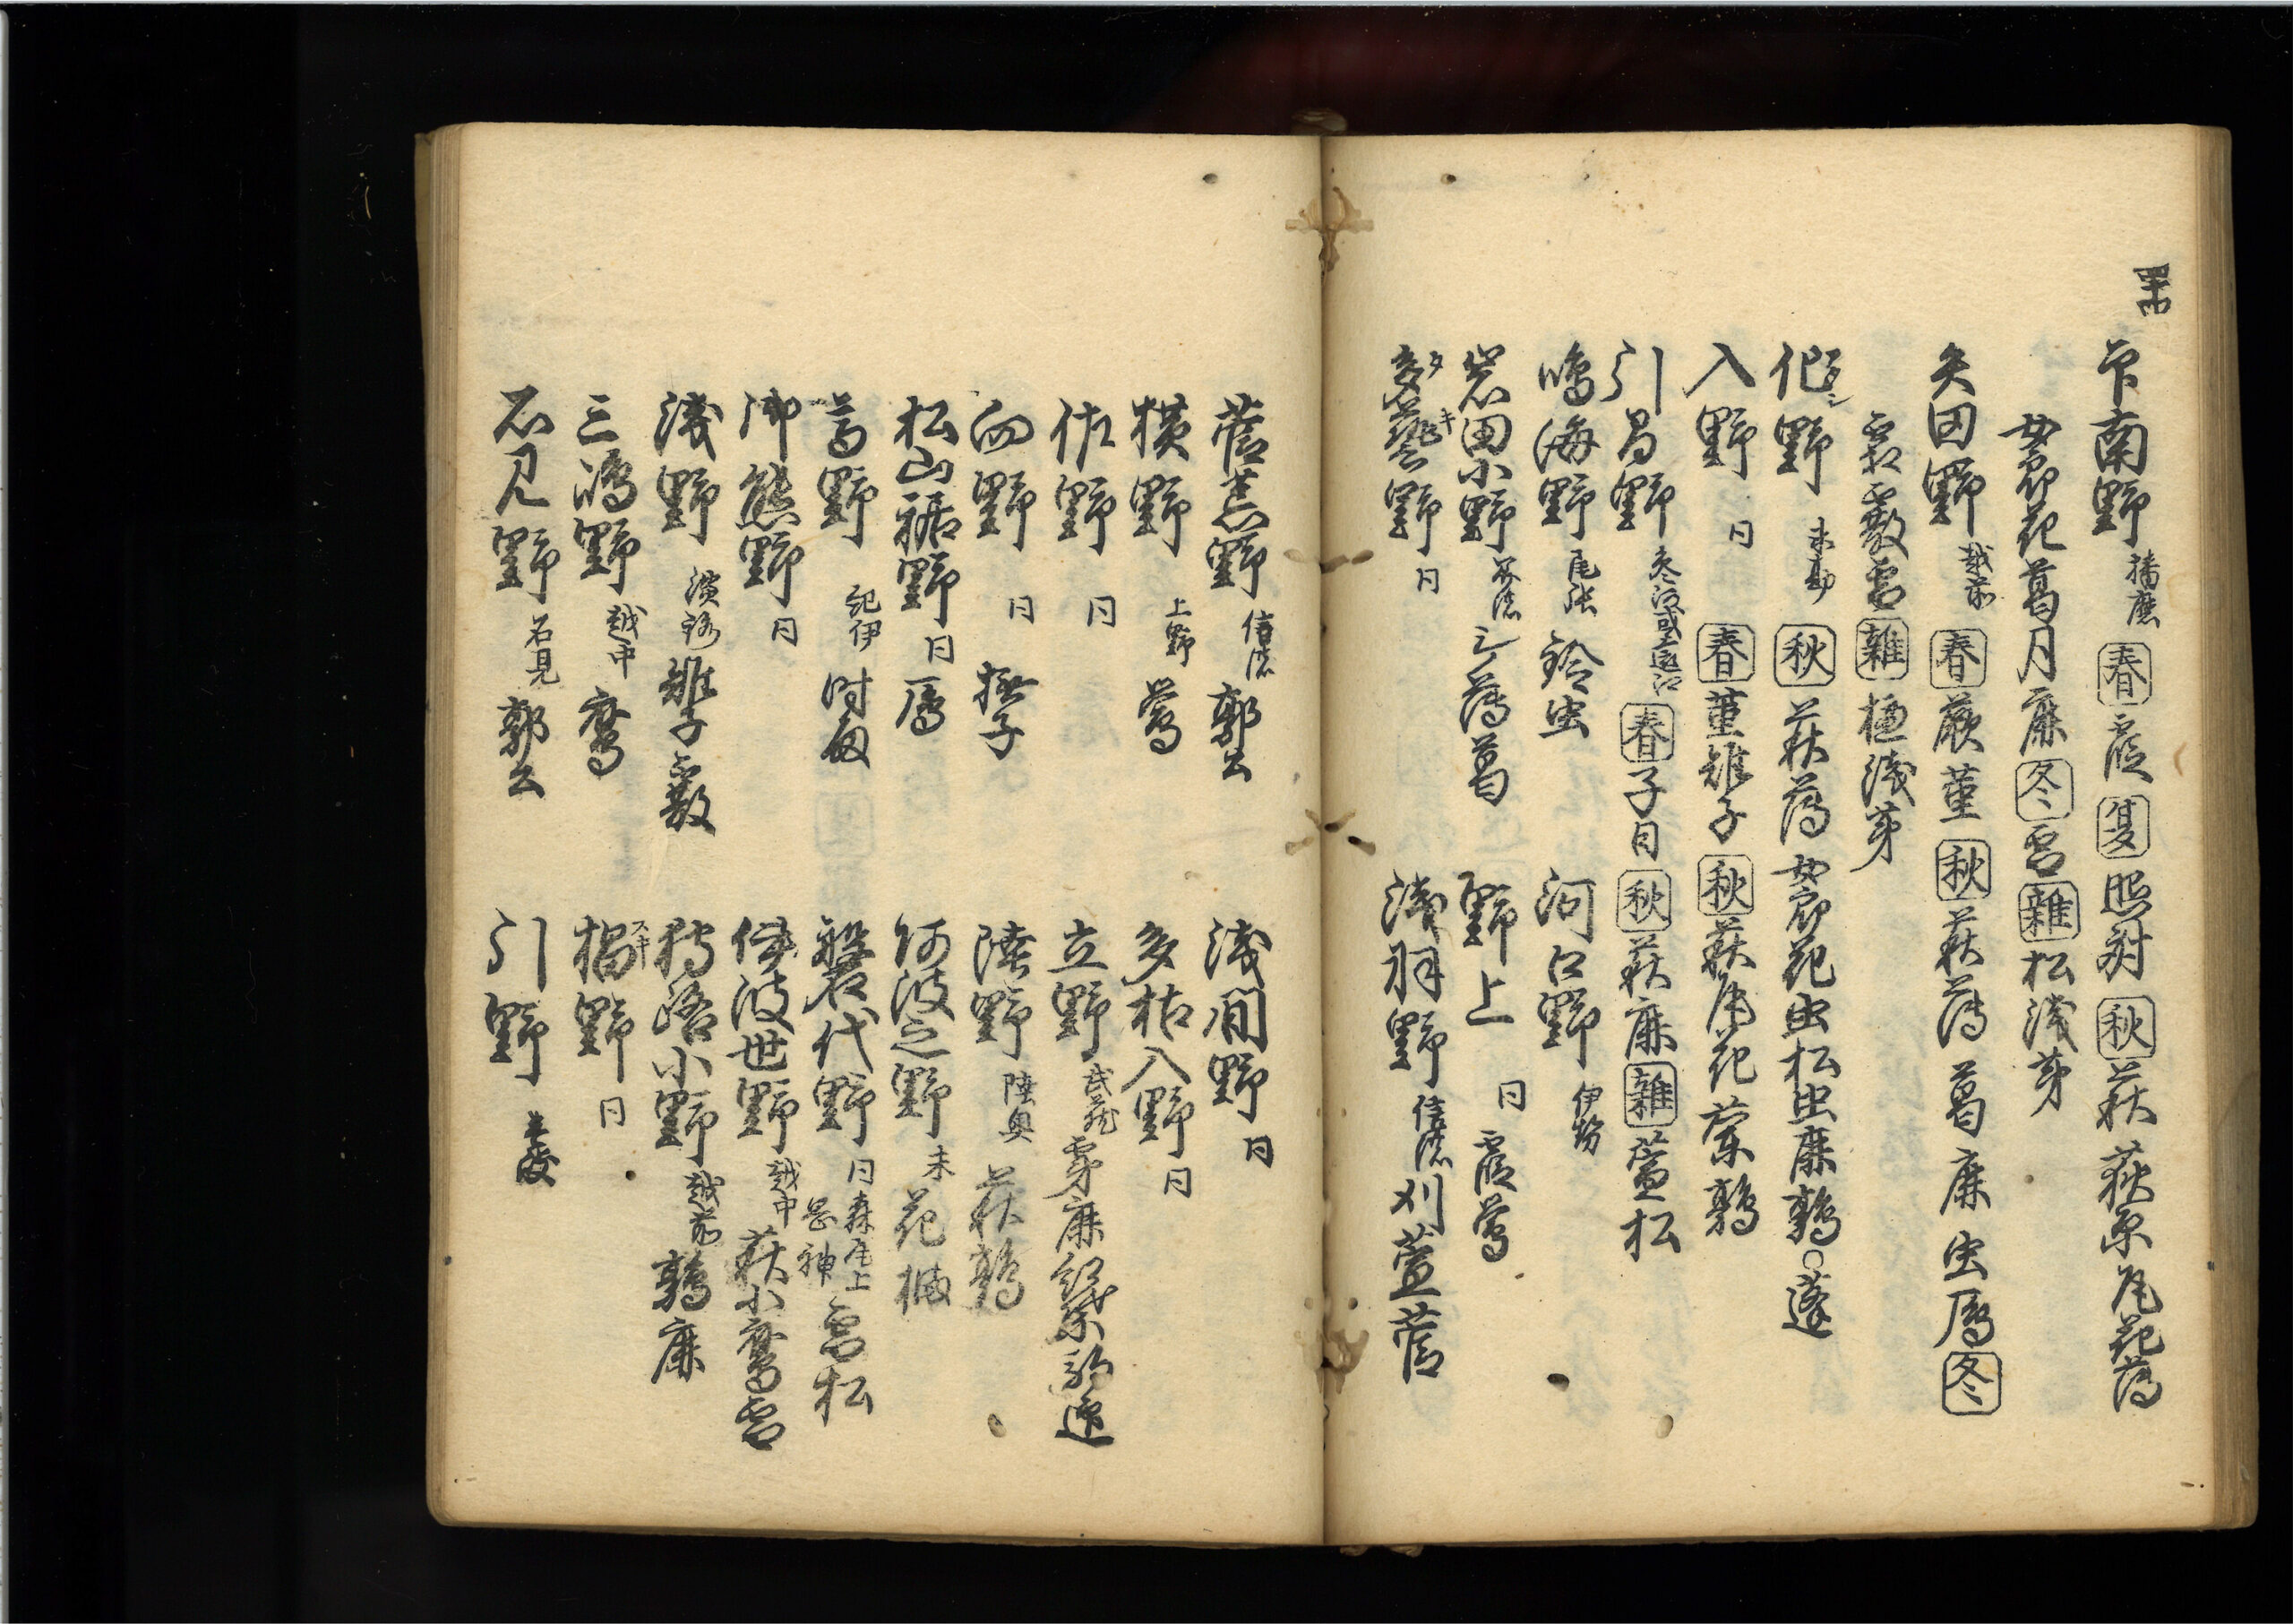 印南野 播磨 春 霞 夏 照射 秋 萩 荻原 尾花 薄
女郎花 葛 月 鹿 冬 雪 雑 松 浅茅
矢田野 越前 春 蕨 菫 秋 萩 薄 葛 鹿 虫 雁 冬
霜 霰 雪 雑 浅茅
化野 アタシ 未勘 秋 萩 薄 女郎花 虫 松虫 鹿 鶉 ○蓬
入野 同 春 菫 雉子 秋 萩 尾花 蘭 鶉
引馬野 参河或云遠江 春 子日 秋 萩 鹿 雑 萱 松
鳴海野 尾張 鈴虫 河口野 伊勢
岩田小野 薄 葛 野上 同 霞 鶯
多藝野 タキ 同 浅羽野 信濃 刈萱 菅
菅荒野 信濃 郭公 浅間野 同
横野 上野 鶯 多枯入野 同
佐野 同 立野 武蔵 鹿 駒迎
向野 同 撫子 陸野 陸奥 萩 鶉
松山裾野 同 雁 阿波之野 未 花
高野 紀伊 時雨 磐代野 同 森 尾上 岡 神 雪 松
御熊野 同 伊波世野 越中 萩 小鷹 雪
浅野 淡路 雉子 霰 越前 鶉 鹿
三嶋野 越中 鷹 楊野 同
石見野 石見 郭公 引野